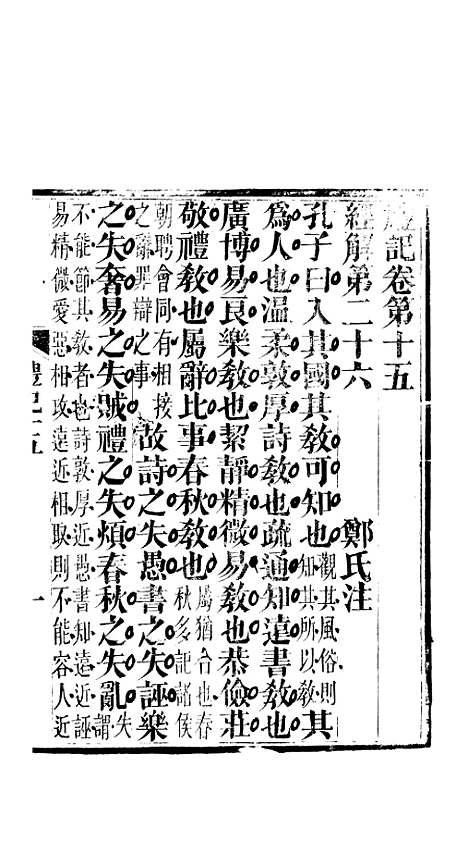 禮記卷第十五
經解第二十六　鄭氏注
孔子曰入其國其教可知也觀其風俗則知其所以教其
爲人也溫柔敦厚詩教也疏通知遠書教也
廣博易良樂教也絜靜精微易教也恭儉莊
敬禮教也屬辭比事春秋教也屬猶合也春秋多記諸侯
朝聘會同有相接之辭罪辯之事故詩之失愚書之失誣樂
之失奢易之失賊禮之失煩春秋之失亂失謂
不能節其教者也詩敦厚近愚書知遠近誣
易精微愛惡相攻遠近相取則不能容人近
禮記十五
一